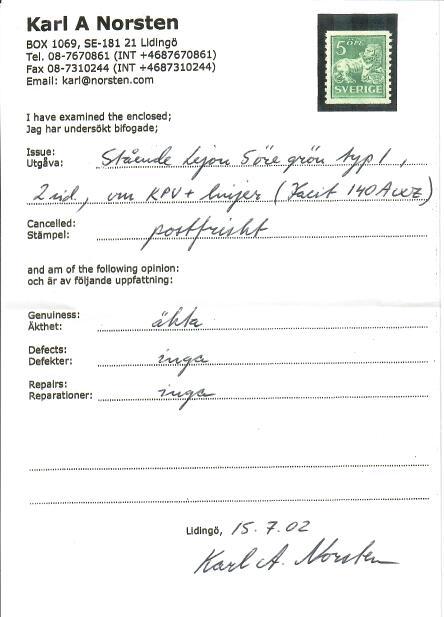 Karl A Norsten
BOX 1069, SE-181 21 Lidingö
Tel. 08-7670861 (INT +4687670861)
Fax 08-7310244 (INT +4687310244)
Email: karl@norsten.com
5 ÖRE
SVERIGE
I have examined the enclosed;
Jag har undersökt bifogade;
Issue:
Utgåva: Stående lejon 5 öre grön typ 1,
2 sid, vm KPV + linjer (Facit 140Acxz)
Cancelled:
Stämpel: postfriskt
and am of the following opinion:
och är av följande uppfattning:
Genuiness:
Äkthet: äkta
Defects:
Defekter: inga
Repairs:
Reparationer: inga
Lidingö, 15.7.02
Karl A. Norsten